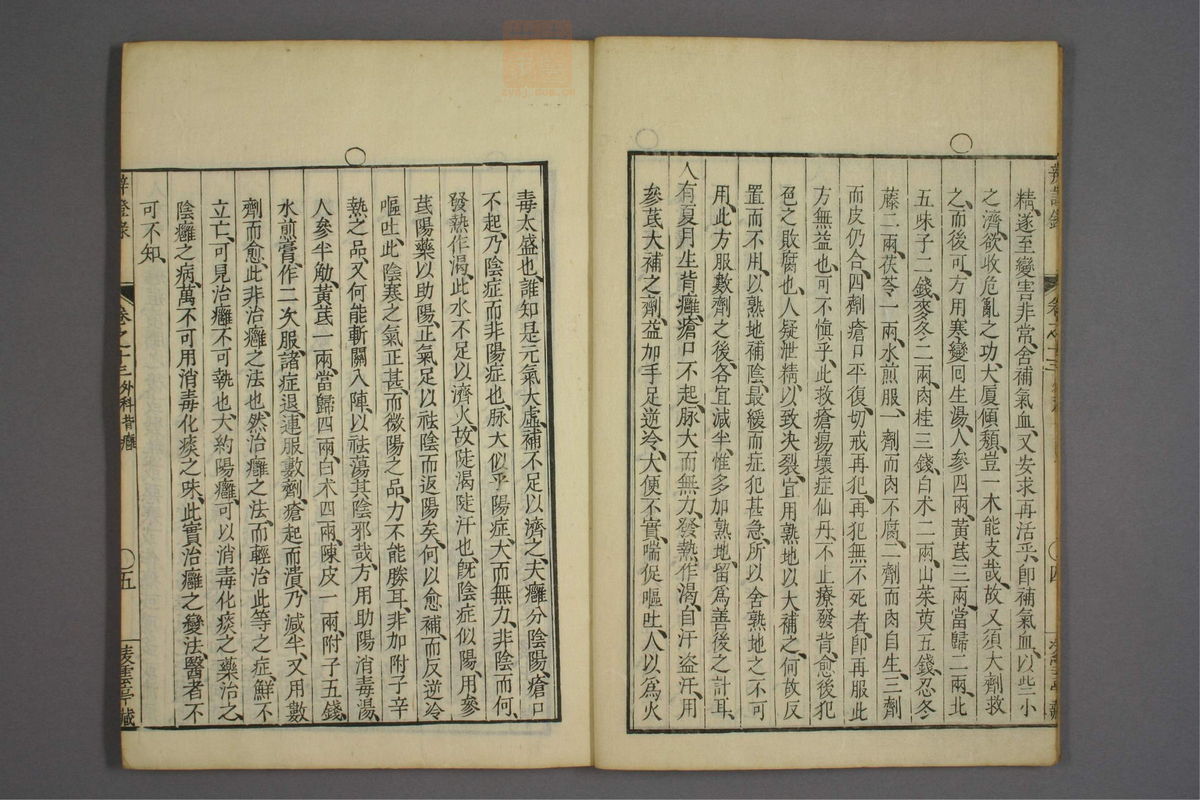 精、遂至變害非常、舍補氣血、又安求再活乎、卽補氣血、以些小
之濟、欲收危亂之功、大厦傾頽、豈一木能支哉、故又須大劑救
之、而後可、方用寒變回生湯、人參四兩、黃茋三兩、當歸二兩、北
五味子二錢、麥冬二兩、肉桂三錢、白术二兩、山茱萸五錢、忍冬
藤二兩、茯苓一兩、水煎服、一劑而肉不腐、二劑而肉自生、三劑
而皮仍合、四劑瘡口平復、切戒再犯、再犯無不死者、卽再服此
方無益也、可不慎乎、此救瘡瘍壞症仙丹、不止療發背愈後犯
色之敗腐也、人疑泄精、以致决裂、宜用熟地以大補之、何故反
置而不用、以熟地補陰、最緩而症犯甚急、所以舍熟地之不可
用、此方服數劑之後、各宜減半、惟多加熟地、留爲善後之計耳、
人有夏月生背癰、瘡口不起、脉大而無力、發熱作渴、自汗盗汗、用
參茋大補之劑、益加手足逆冷、大便不實、喘促嘔吐、人以爲火
毒太盛也、誰知是元氣大虛、補不足以濟之、夫癰分陰陽、瘡口
不起、乃陰症而非陽症也、脉大似乎陽症、大而無力、非陰而何、
發熱作渴、此水不足以濟火、故陡渴陡汗也、旣陰症似陽、用參
茋陽藥以助陽、正氣足以祛陰而返陽矣、何以愈補、而反逆冷
嘔吐、此陰寒之氣正甚、而微陽之品、力不能勝耳、非加附子辛
熱之品、又何能斬關入陣、以祛蕩其陰邪哉、方用助陽消毒湯、
人參半觔、黃茋一兩、當歸四兩、白术四兩、陳皮一兩、附子五錢、
水煎膏、作二次服、諸症退、連服數劑、瘡起而潰、乃減半、又用數
劑而愈、此非治癰之法也、然治癰之法、而輕治此等之症、鮮不
立亡、可見治癰不可執也、大約陽癰、可以消毒化痰之藥治之、
陰癰之病、萬不可用消毒化痰之味、此實治癰之變法、醫者不
可不知、
辨證錄 卷之十三 外科背癰 五 凌雲亭藏